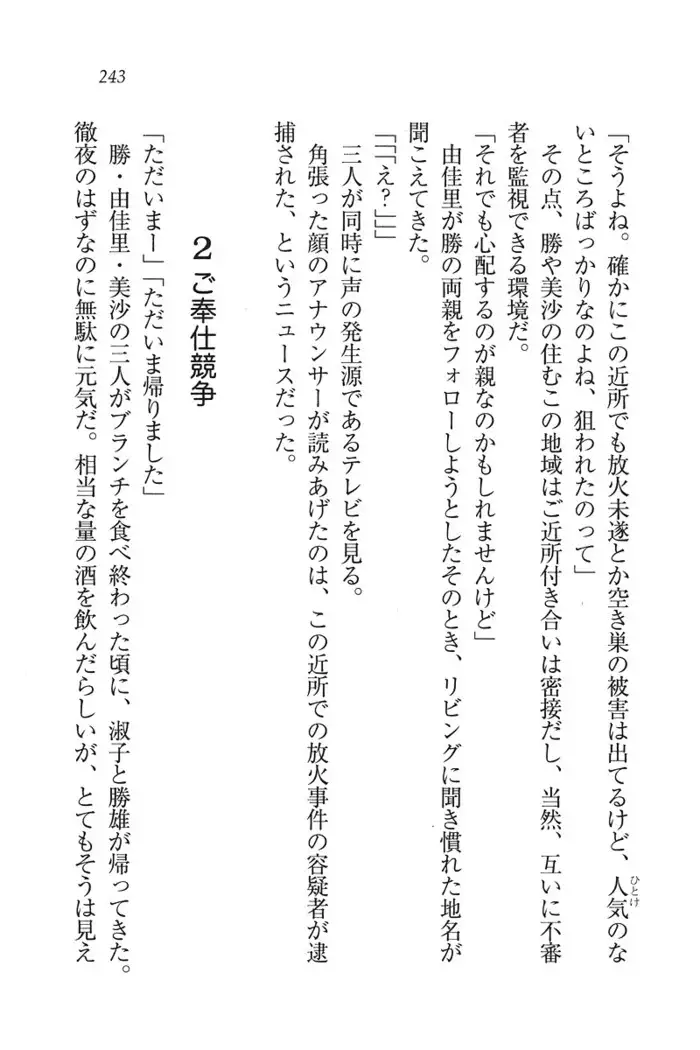 243
「そうよね。確かにこの近所でも放火未遂とか空き巣の被害は出てるけど、人気のな
ひとけ
いところばっかりなのよね、狙われたのって」
その点、勝や美沙の住むこの地域はご近所付き合いは密接だし、当然、互いに不審
者を監視できる環境だ。
「それでも心配するのが親なのかもしれませんけど」
由佳里が勝の両親をフォローしようとしたそのとき、リビングに聞き慣れた地名が
聞こえてきた。
「「「え?」」」
三人が同時に声の発生源であるテレビを見る。
角張った顔のアナウンサーが読みあげたのは、この近所での放火事件の容疑者が逮
捕された、というニュースだった。
2 ご奉仕競争
「ただいまー」「ただいま帰りました」
勝・由佳里・美沙の三人がブランチを食べ終わった頃に、淑子と勝雄が帰ってきた。
徹夜のはずなのに無駄に元気だ。相当な量の酒を飲んだらしいが、とてもそうは見え